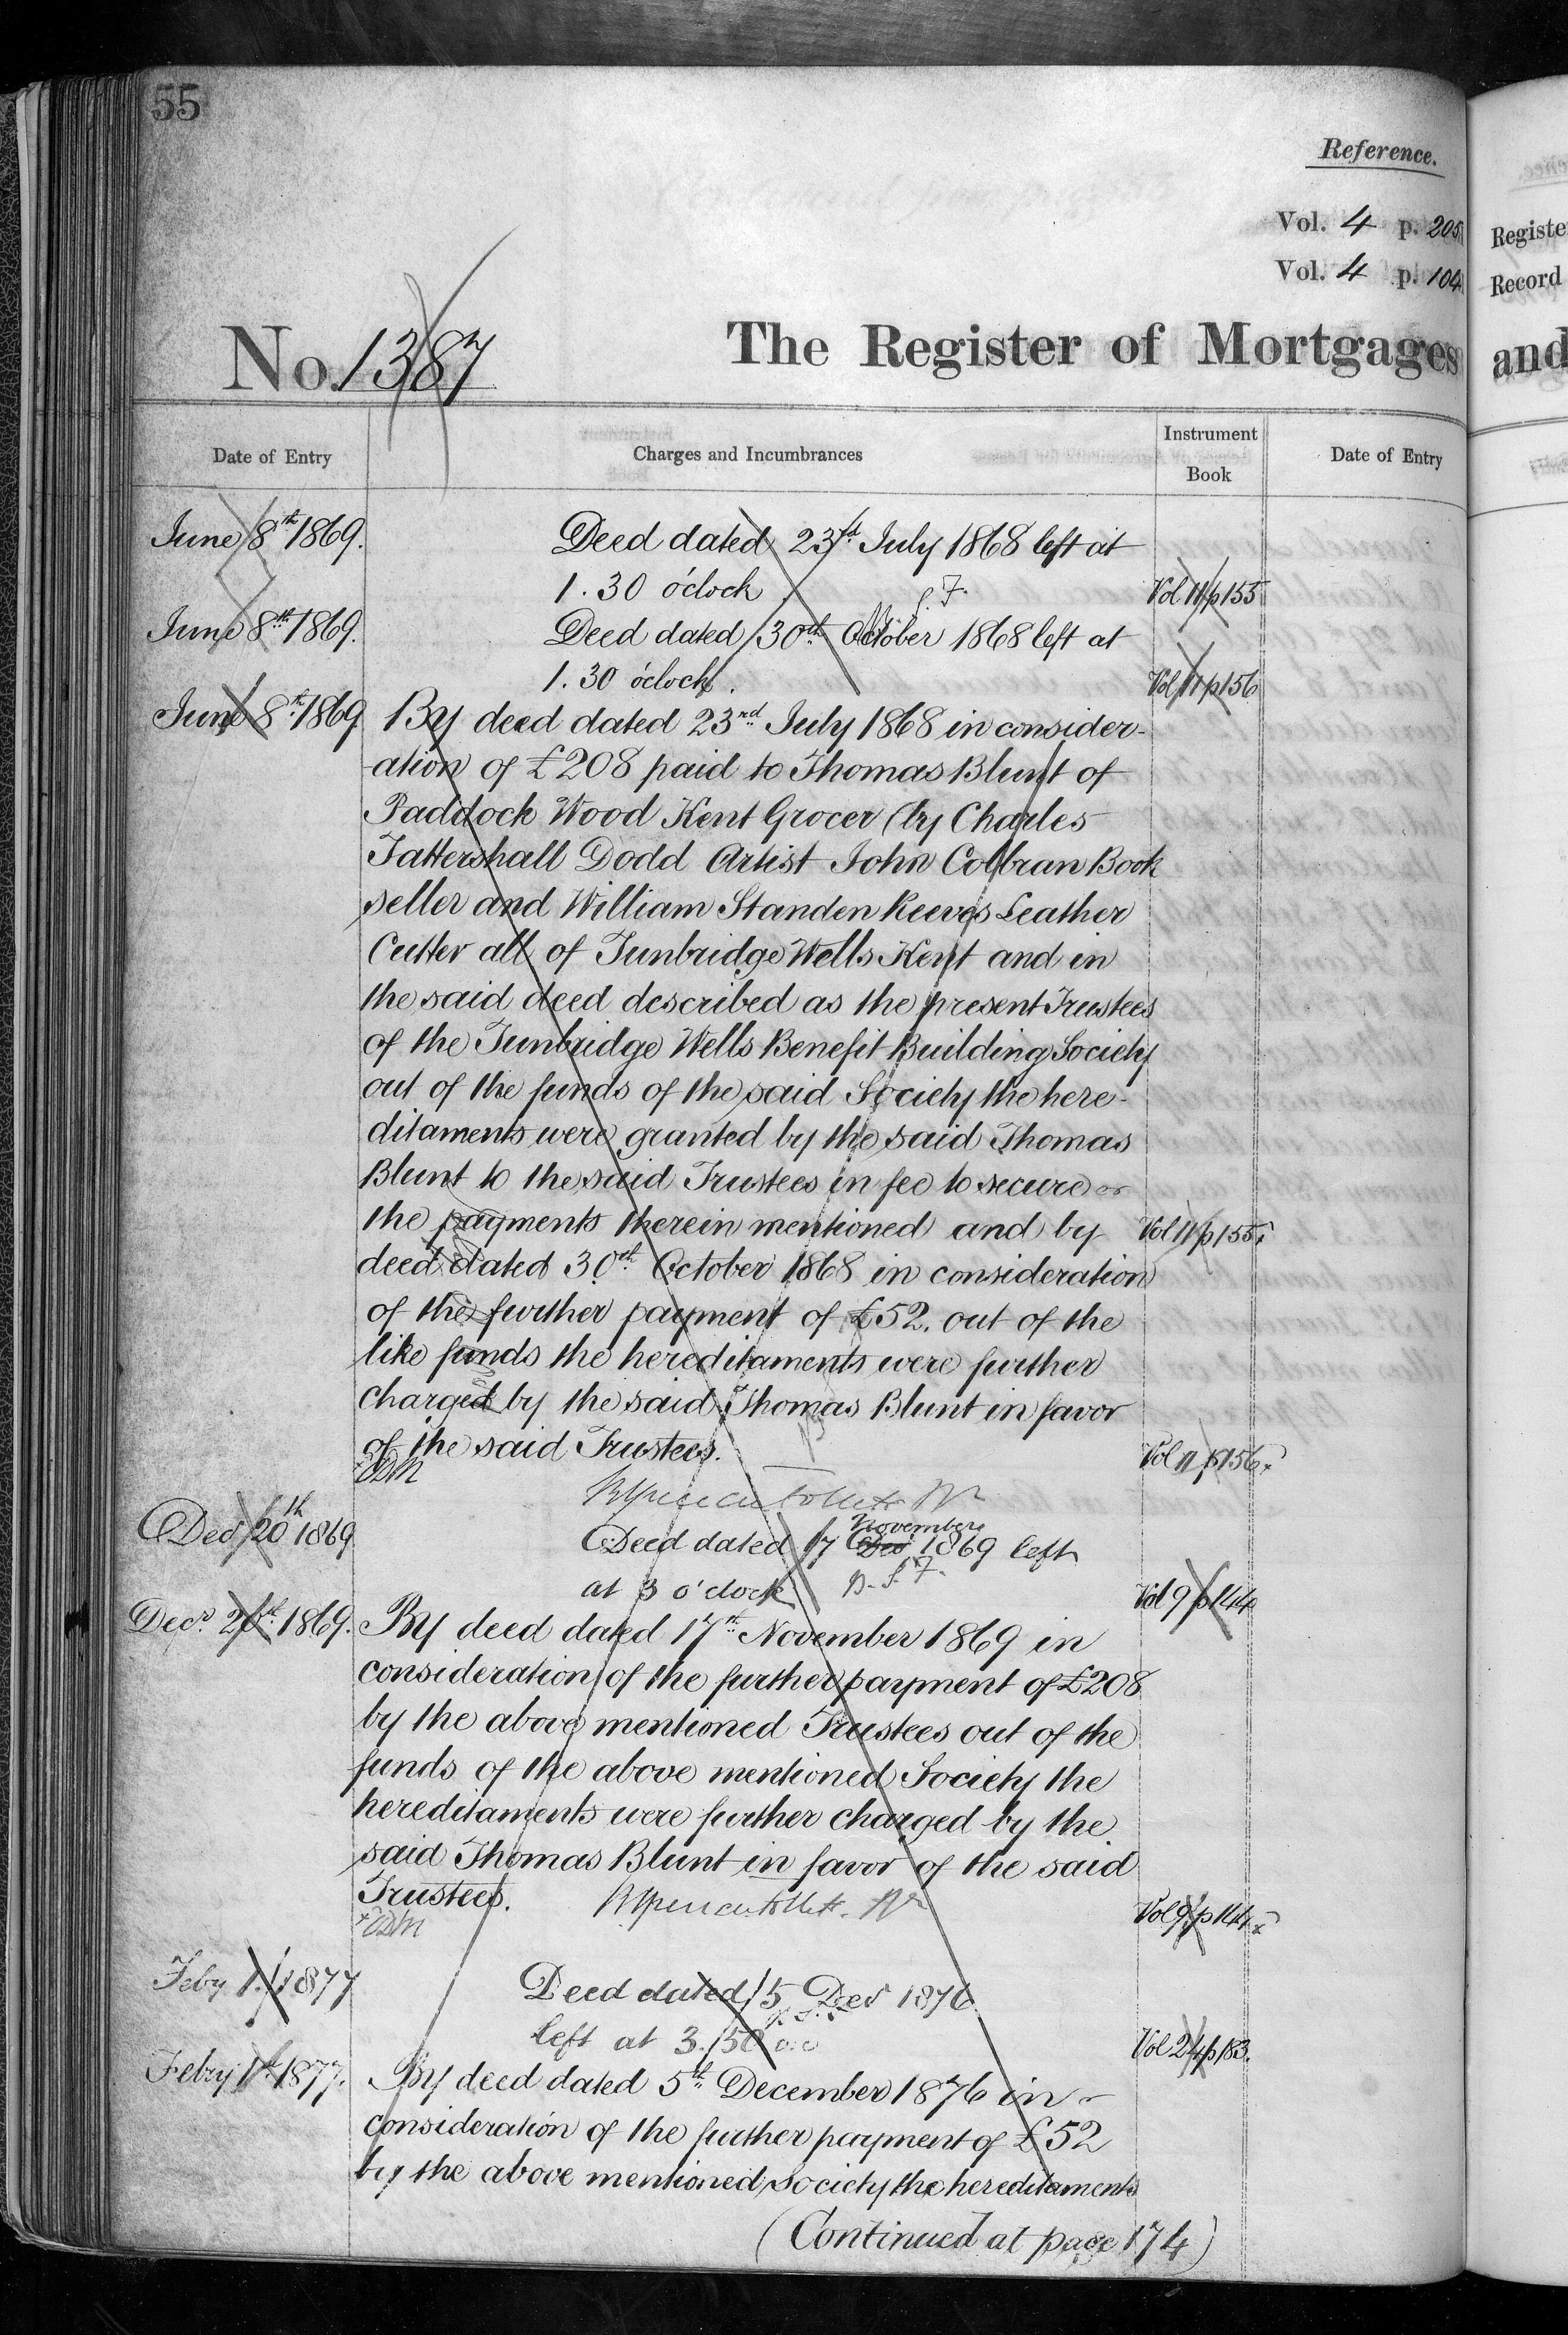 55
Reference.
Vol. 4 p. 205
Vol. 4 p. 104
No. 1387
The Register of Mortgages
Date of Entry
Charges and Incumbrances
Instrument
Book
Date of Entry
June 8th 1869.
Deed dated 23rd July 1868 left at
1.30 o'clock
Vol 11 p 155
June 8th 1869.
Deed dated 30th October 1868 left at
1.30 o'clock.
Vol 11 p 156
June 8th 1869
By deed dated 23rd July 1868 in consider-
ation of £208 paid to Thomas Blunt of
Paddock Wood Kent Grocer (by Charles
Tattershall Dodd Artist John Colbran Book
seller and William Standen Reeves Leather
Cutter all of Tunbridge Wells Kent and in
the said deed described as the present Trustees
of the Tunbridge Wells Benefit Building Society
out of the funds of the said Society the here-
ditaments were granted by the said Thomas
Blunt to the said Trustees in fee to secure
the payments therein mentioned and by
Vol 11 p 155
deed dated 30th October 1868 in consideration
of the further payment of £52. out of the
like funds the hereditaments were further
charged by the said Thomas Blunt in favor
of the said Trustees.
Vol 11 p 156
Decr 20th 1869
November
Deed dated 17 Dec 1869 left
at 3 o'clock
Vol 9 p 144
Decr 20th 1869.
By deed dated 17th November 1869 in
consideration of the further payment of £208
by the above mentioned Trustees out of the
funds of the above mentioned Society the
hereditaments were further charged by the
said Thomas Blunt in favor of the said
Trustees.
Vol 9 p 144
Feby 1. 1877
Deed dated 5 Decr 1876
left at 3.50
Vol 24 p 183.
Febry 1st 1877.
By deed dated 5th December 1876 in
consideration of the further payment of £52
by the above mentioned Society the hereditaments
(Continued at page 174)
Registe
Record
and